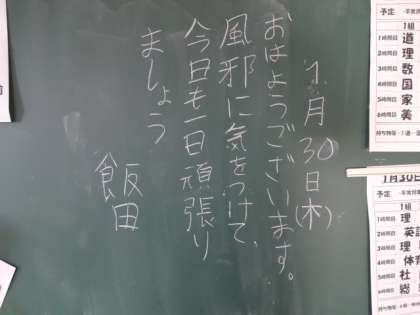 1月30日(木)
おはようございます。
風邪に気をつけて、
今日も一日頑張り
ましょう
飯田
予定
1組
1時間目 道
2時間目 理
3時間目 数
4時間目 国
5時間目 家
6時間目 美
1月30日
予定
1組
1時間目 理
2時間目 英語
3時間目 理
4時間目 体育
5時間目 社
6時間目 総